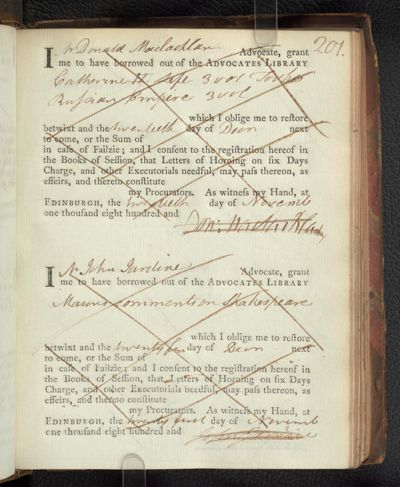 201.
I Mr Donald Maclachlan Advocate, grant
me to have borrowed out of the ADVOCATES LIBRARY
Catherine II life 3 vols
Russian Empire 3 vols
which I oblige me to reſtore
betwixt and the twentieth day of Decm next
to come, or the Sum of
in caſe of Failzie; and I conſent to the regiſtration hereof in
the Books of Seſſion, that Letters of Horning on ſix Days
Charge, and other Executorials needful, may paſs thereon, as
effeirs, and thereto conſtitute
my Procurators. As witneſs my Hand, at
EDINBURGH, the twentieth day of Novemb
one thouſand eight hundred and
Don: Maclachlan
I Mr John Jardine Advocate, grant
me to have borrowed out of the ADVOCATES LIBRARY
Masons Comments on Shakespeare
which I oblige me to reſtore
betwixt and the day of Decm next
to come, or the Sum of
in caſe of Failzie; and I conſent to the regiſtration hereof in
the Books of Seſſion, that Letters of Horning on ſix Days
Charge, and other Executorials needful, may paſs thereon, as
effeirs, and thereto conſtitute
my Procurators. As witneſs my Hand, at
EDINBURGH, the twenty first day of Novemb
one thouſand eight hundred and